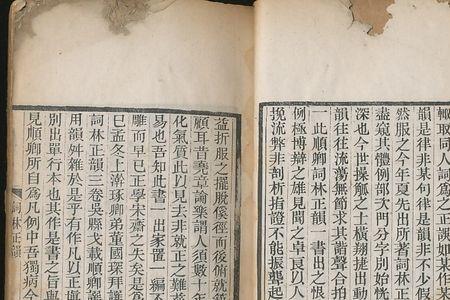 輒取同人詞爲之正誤如某作某
韻是律非某句律是韻非不少假
然服之今年夏先出所著詞林
盡窺其體例部次門分字別始恍
深也今世操觚之士橫翔捷出動
韻往往流蕩無節求其諧聲合指
一此順卿詞林正韻一書出之恨
例極博辯之雄見聞之卓良以人
挽流弊非剖析指證不能振聾起
益折服之擺脫徑而後俯就範
顧耳昔堯章論樂謂人須數十年
化氣質此以見去非就正之難
易也吾知此書一出家置一編不
雕而早已正學宋齋之失矣是爲
巳孟冬上澣琢卿弟董國琛拜
詞林正韻三卷吳縣戈載順卿
用韻舛雜是乎有作凡以正
別出單行本也其作是書之旨與
見順卿所自爲凡例中吾獨病今
詞林正韻